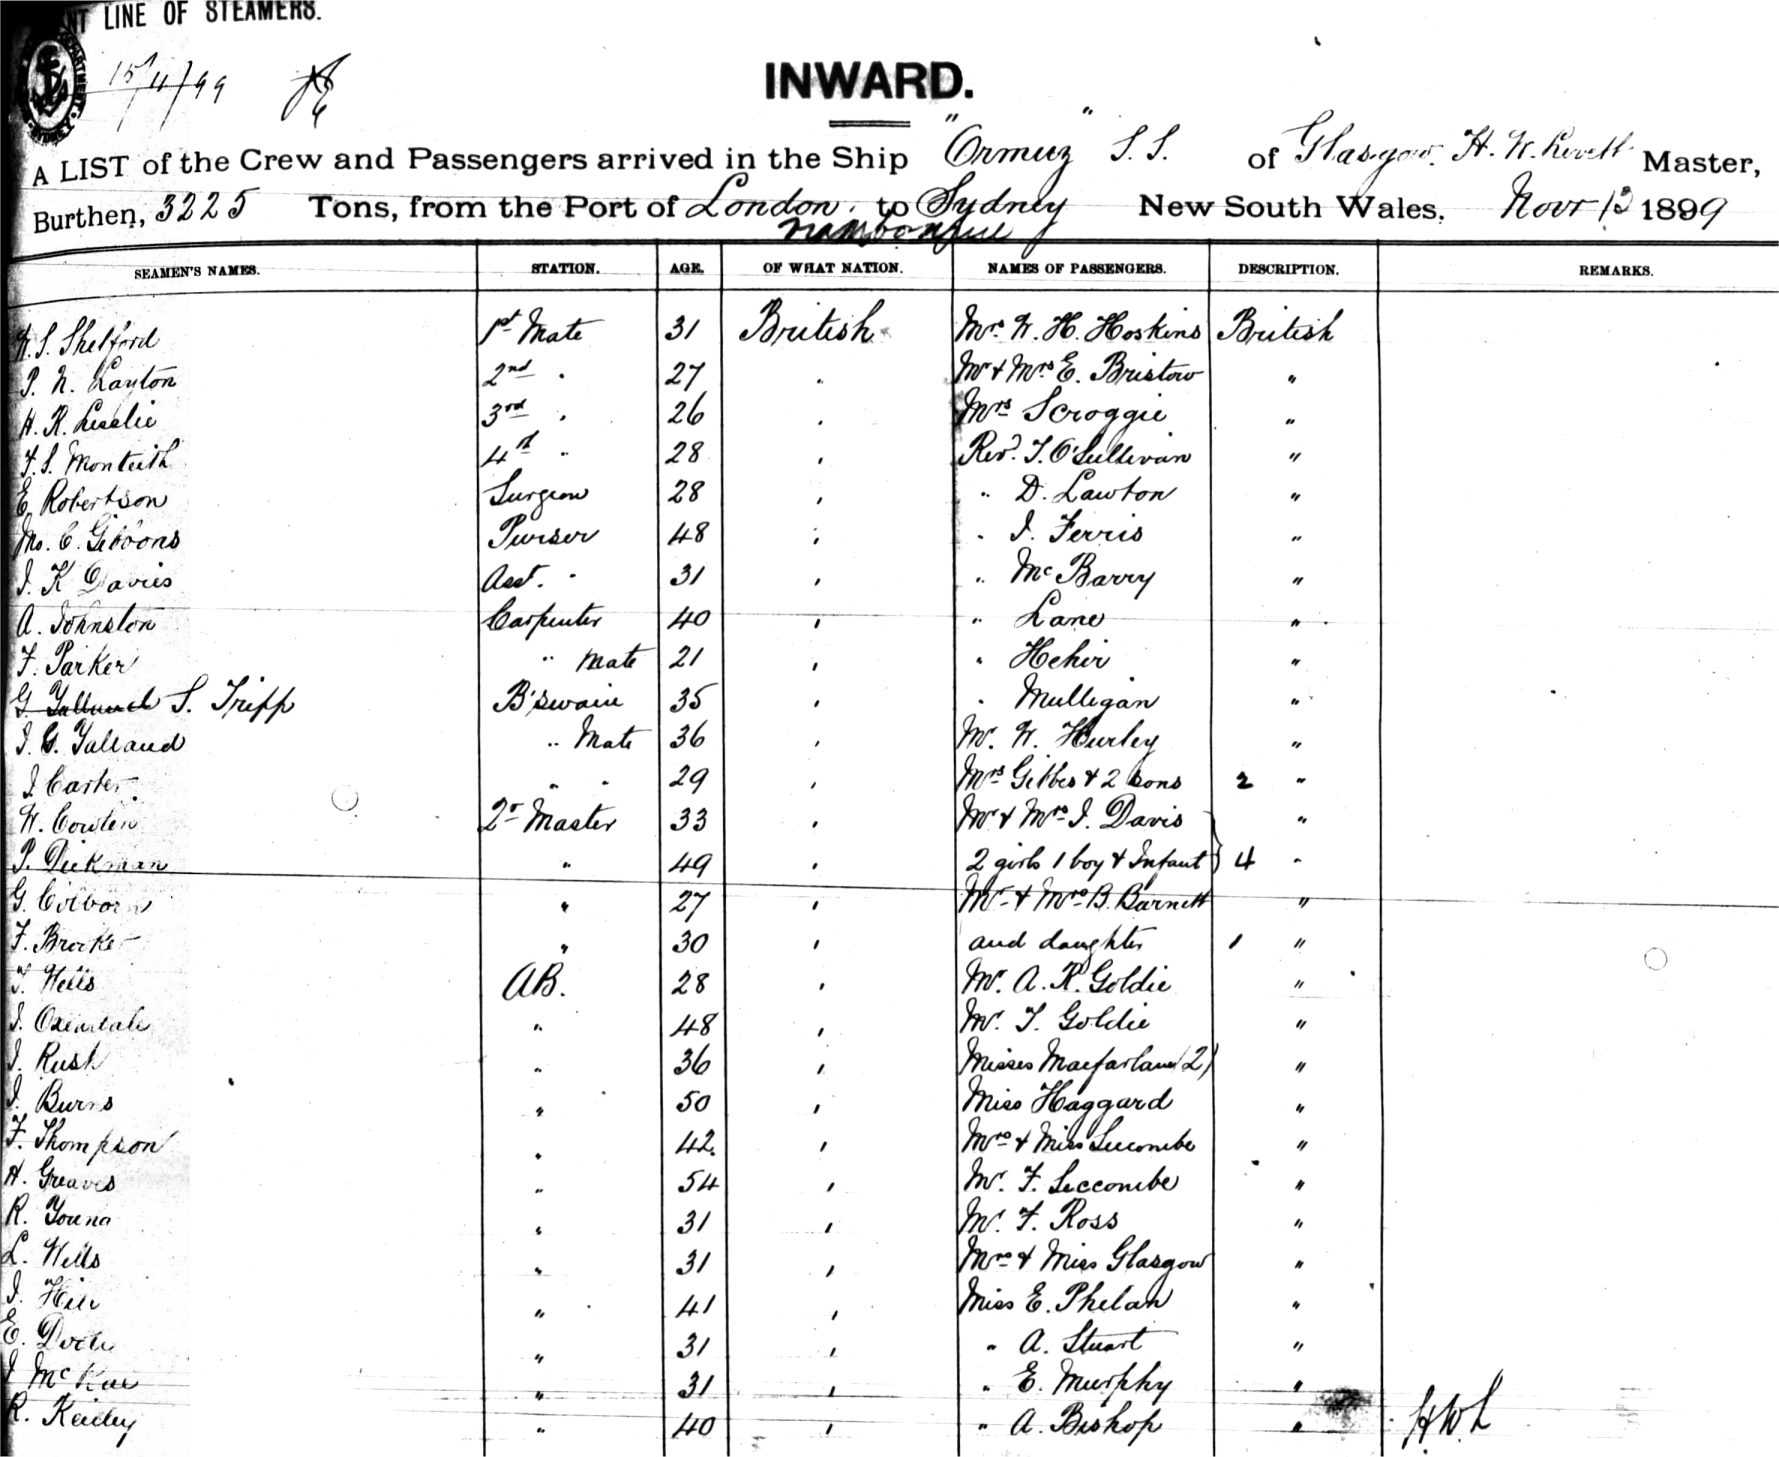 LINE OF STEAMERS.
15/11/99
INWARD.
A LIST of the Crew and Passengers arrived in the Ship "Ormuz" S.S. of Glasgow, H. W. Master,
Burthen, 3225 Tons, from the Port of London to Sydney New South Wales, Novr 13 1899
SEAMEN'S NAMES. STATION. AGE. OF WHAT NATION. NAMES OF PASSENGERS. DESCRIPTION. REMARKS.
W. S. Shelford 1st Mate 31 British Mr. W. H. Hoskins British
P. N. Layton 2nd " 27 " Mr & Mrs E. Bristow "
H. R. Leslie 3rd " 26 " Mrs Scroggie "
F. S. Monteith 4th " 28 " Revd. T. O'Sullivan "
E. Robertson Surgeon 28 " " D. Lawton "
Jno. C. Gibbons Purser 48 " " J. Ferris "
J. K. Davies Asst. " 31 " " McBarry "
A. Johnston Carpenter 40 " " Lane "
F. Parker " Mate 21 " " Hehir "
G. S. Tripp B'swain 35 " " Mulligan "
J. G. Talland " Mate 36 " Mr. W. Hurley "
J. Carter " " 29 " Mrs Gibbes & 2 sons 2 "
W. Cowlen 2r Master 33 " Mr & Mrs J. Davis "
P. Dickman " 49 " 2 girls 1 boy & Infant } 4 "
G. Colborn " 27 " Mr & Mrs B. Barnett "
F. " 30 " and daughter 1 "
T. Wells AB. 28 " Mr. A. R. Goldie "
J. Oxendale " 48 " Mr. T. Goldie "
J. Rush " 36 " Misses Macfarlane (2) "
J. Burns " 50 " Miss Haggard "
F. Thompson " 42 " Mrs & Miss Seccombe "
H. Greaves " 54 " Mr. F. Seccombe "
R. Young " 31 " Mr. F. Ross "
L. Wells " 31 " Mrs & Miss Glasgow "
J. " 41 " Miss E. Phelan "
E. " 31 " " A. Stuart "
J McRae " 31 " " E. Murphy "
R. " 40 " " A. Bishop " H.W.L